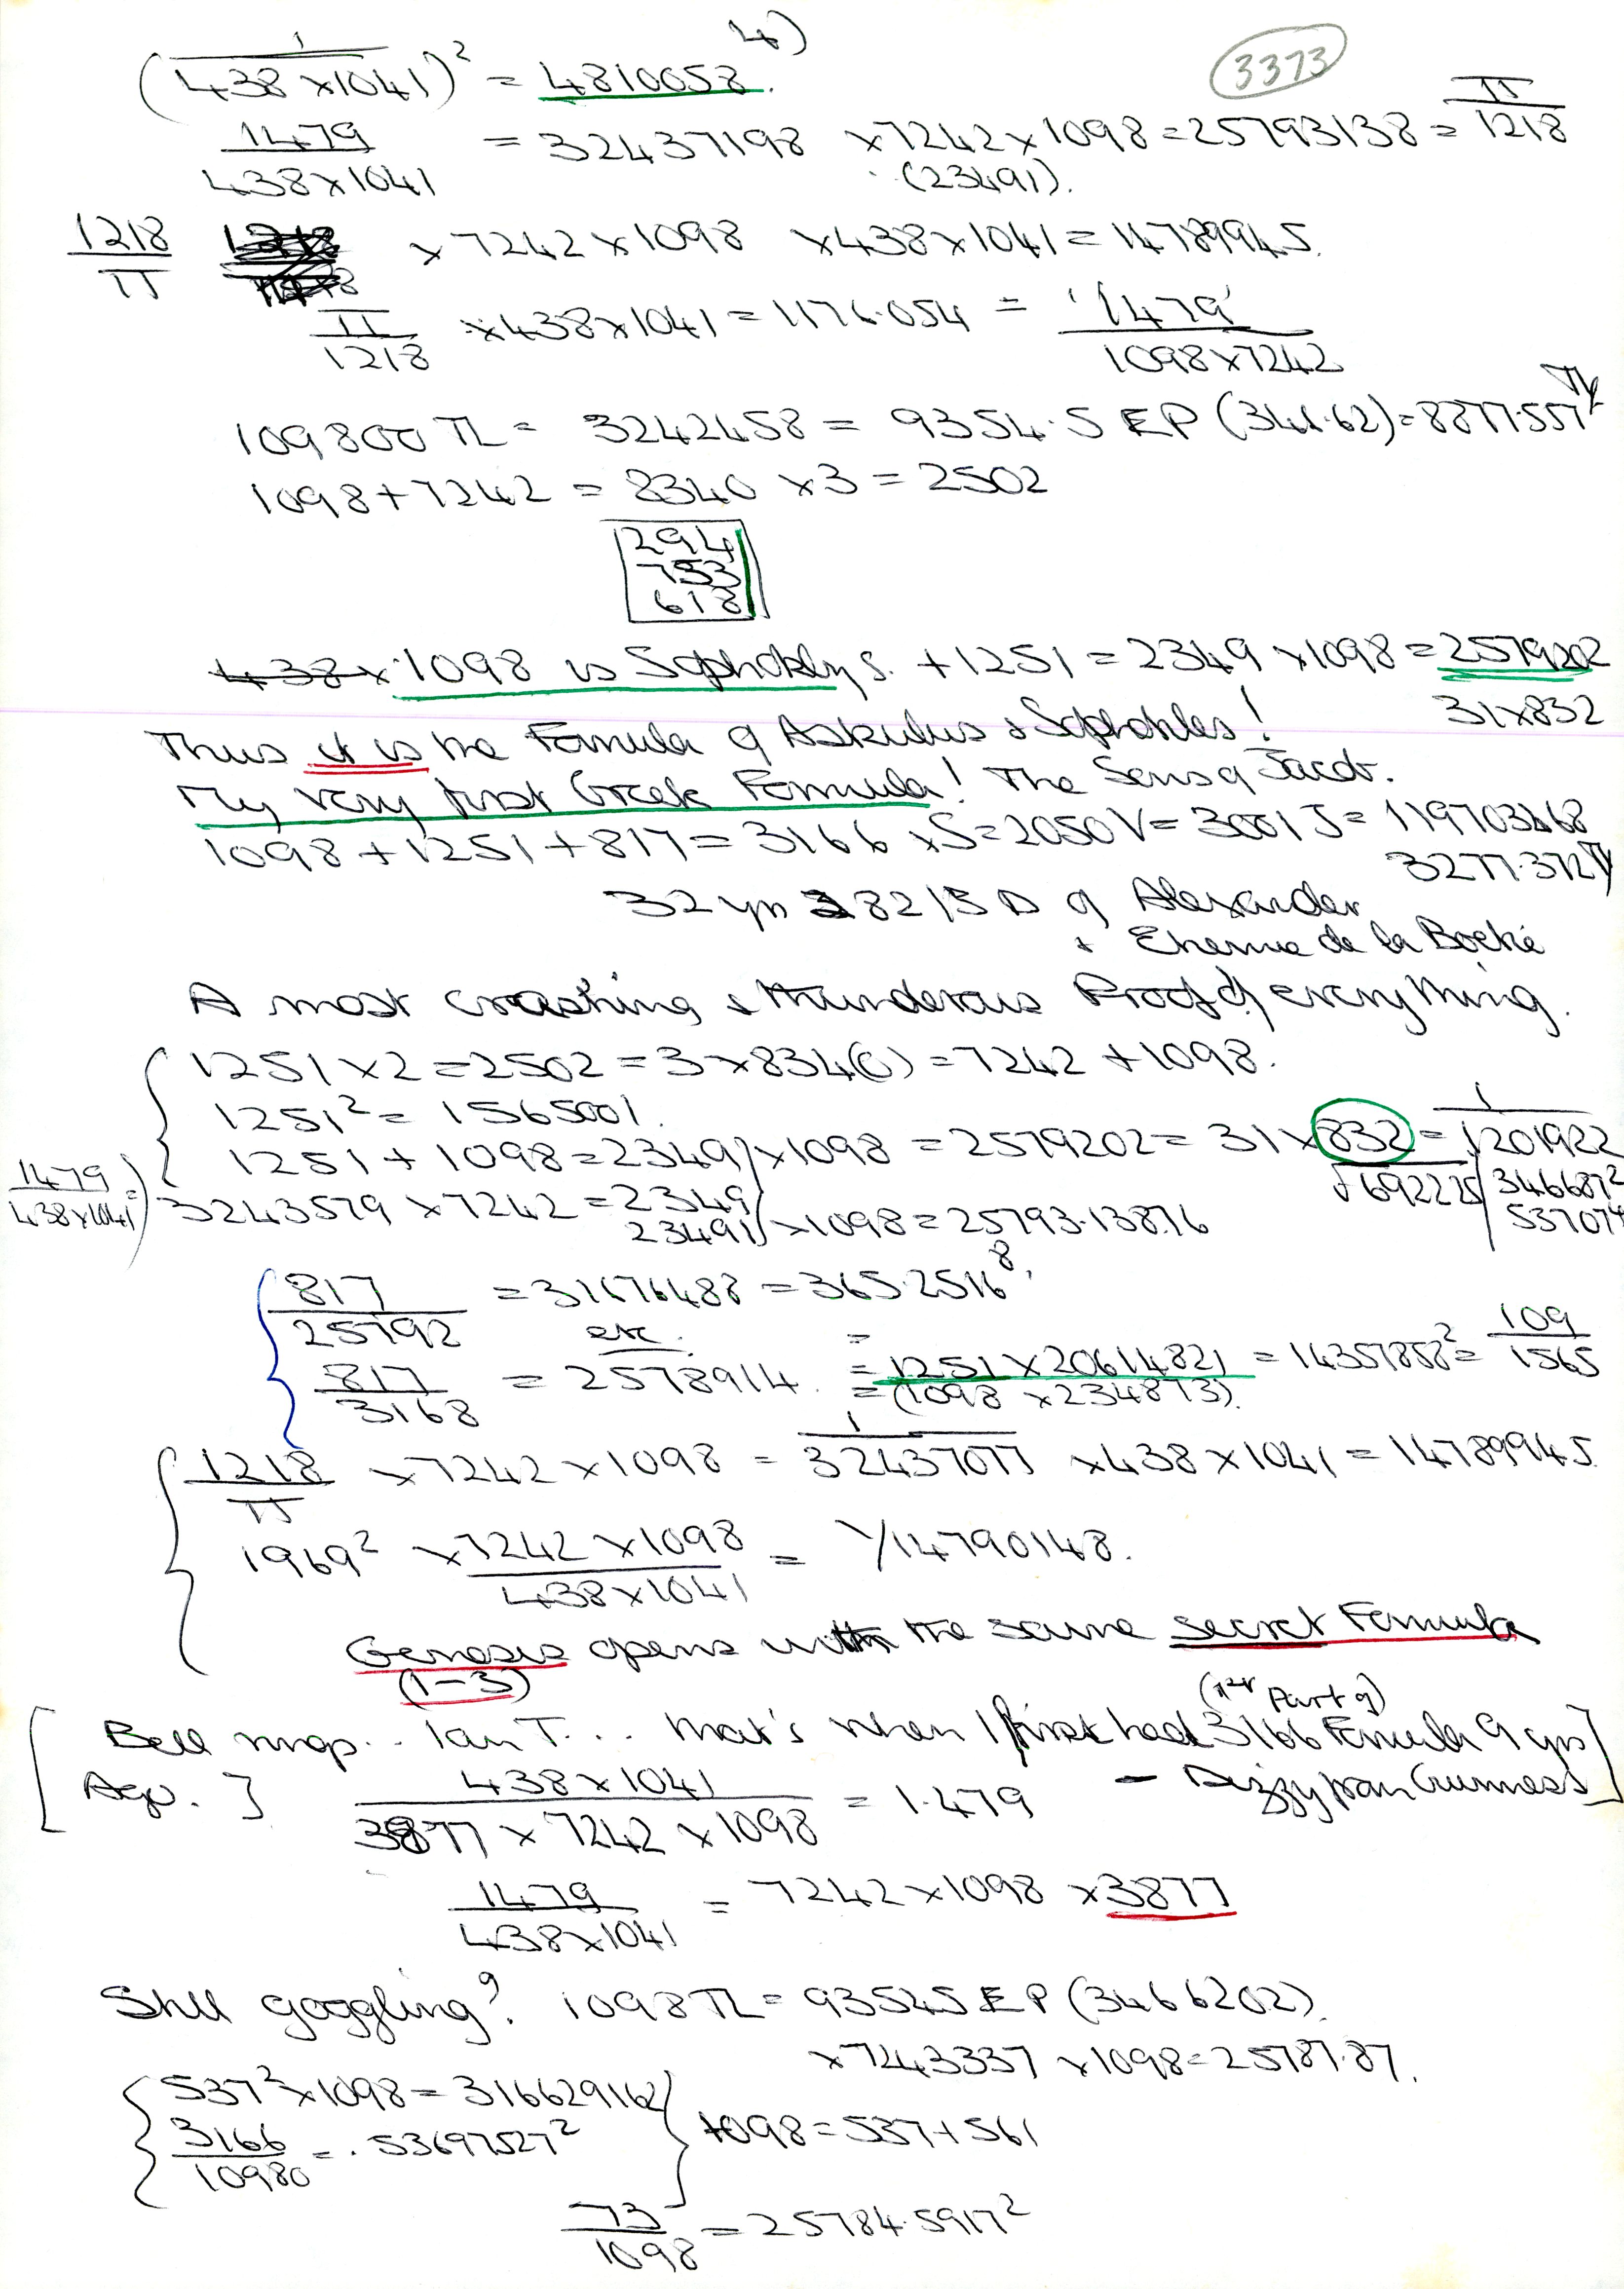 4)
3373
(1/438×1041)² = 4810058.
1479/438×1041 = 32437198 ×7242×1098 = 25793138 = π/1218
(23491).
1218/π ×7242×1098 ×438×1041 = 14789945.
π/1218 ×438×1041 = 1176.054 = '1479'/1098×7242
109800 TL = 3242458 = 9354.5 EP (346.62) = 8877.557
1098+7242 = 8340 ×3 = 2502
294
753
618
438× 1098 is Sophoklys. +1251 = 2349 ×1098 = 2579202
31×832
Thus it is the Formula of Askulus & Sophokles!
My very first Greek Formula! The Sens of Jacob.
1098+1251+817 = 3166 ×S = 2050 V = 3001 J =
3277.372
32 yrs 8215 D of Alexander
+ Etienne de la Boetie
A most crashing & thunderous Proof of everything.
1251×2 = 2502 = 3×834(0) = 7242+1098.
1251² = 1565001.
1251+1098 = 2349 ×1098 = 2579202 = 31×832 = 1/1201922
√692225 346687²
1479/438×1041 = 3243579 ×7242 = 2349
23491 ×1098 = 25793.13876
817/25792 = 31676488 = 365.2516⁸
etc.
817/3168 = 25789114. = 1251×20614821 = 14357858² = 109/1565
= (1098×234873).
1218/π ×7242×1098 = 1/32437077 ×438×1041 = 14789945.
1969² ×7242×1098/438×1041 = 1/14790148.
Genesis opens with the same secret Formula
(1-3)
(1st Part of)
[Bell rings.. Ian T... that's when I first had 3166 Formula 9 yrs
Ago.] – Dizzy from Guinness]
438×1041/3877×7242×1098 = 1.479
1479/438×1041 = 7242×1098×3877
Still goggling? 1098 TL = 93545 EP (3466202)
×7243337 ×1098 = 25787.87.
537²×1098 = 316629162
3166/10980 = .53697527² 1098 = 537+561
73/1098 = 25784.5917²